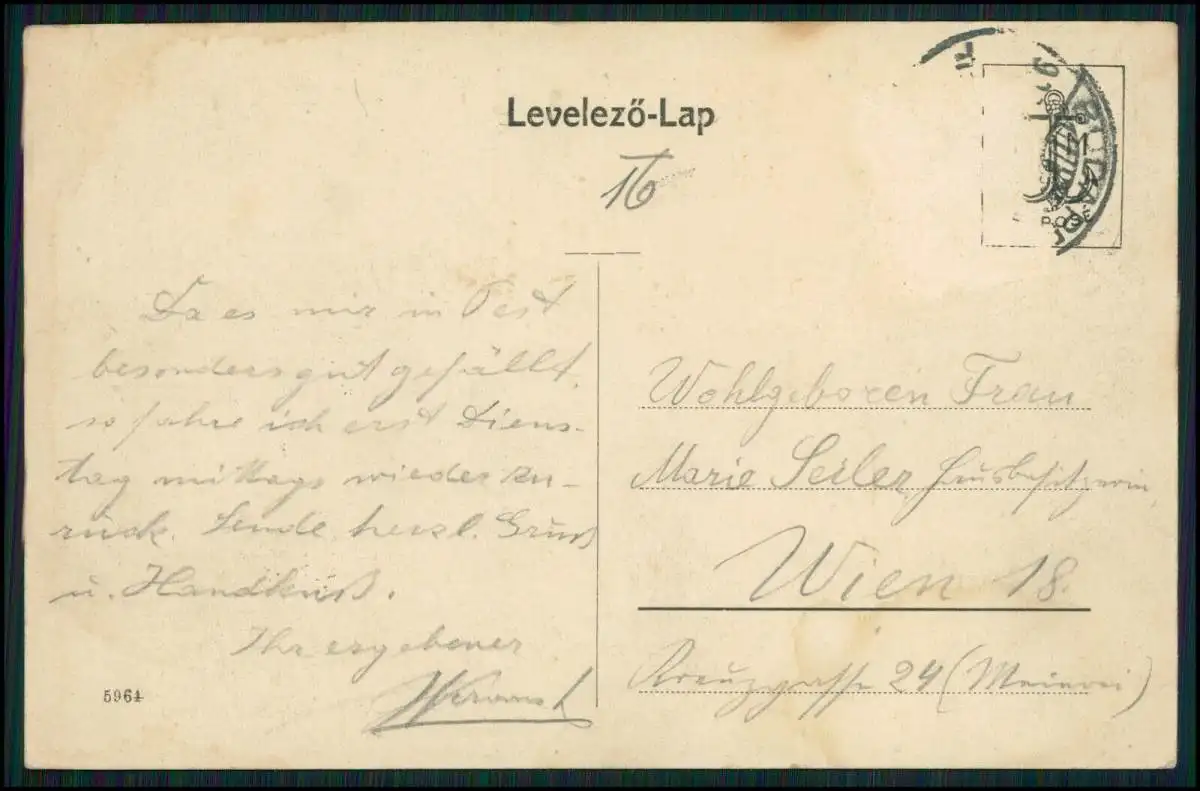 Levelező-Lap
16
Da es mir in Pest
besonders gut gefällt,
so fahre ich erst Diens-
tag mittags wieder zu-
rück. Sende herzl. Gruß
u. Handkuß.
Ihr ergebener
5964
Wohlgeboren Frau
Marie Seiler Hausbesitzerin
Wien 18.
Kreuzgasse 24
BUDAPEST